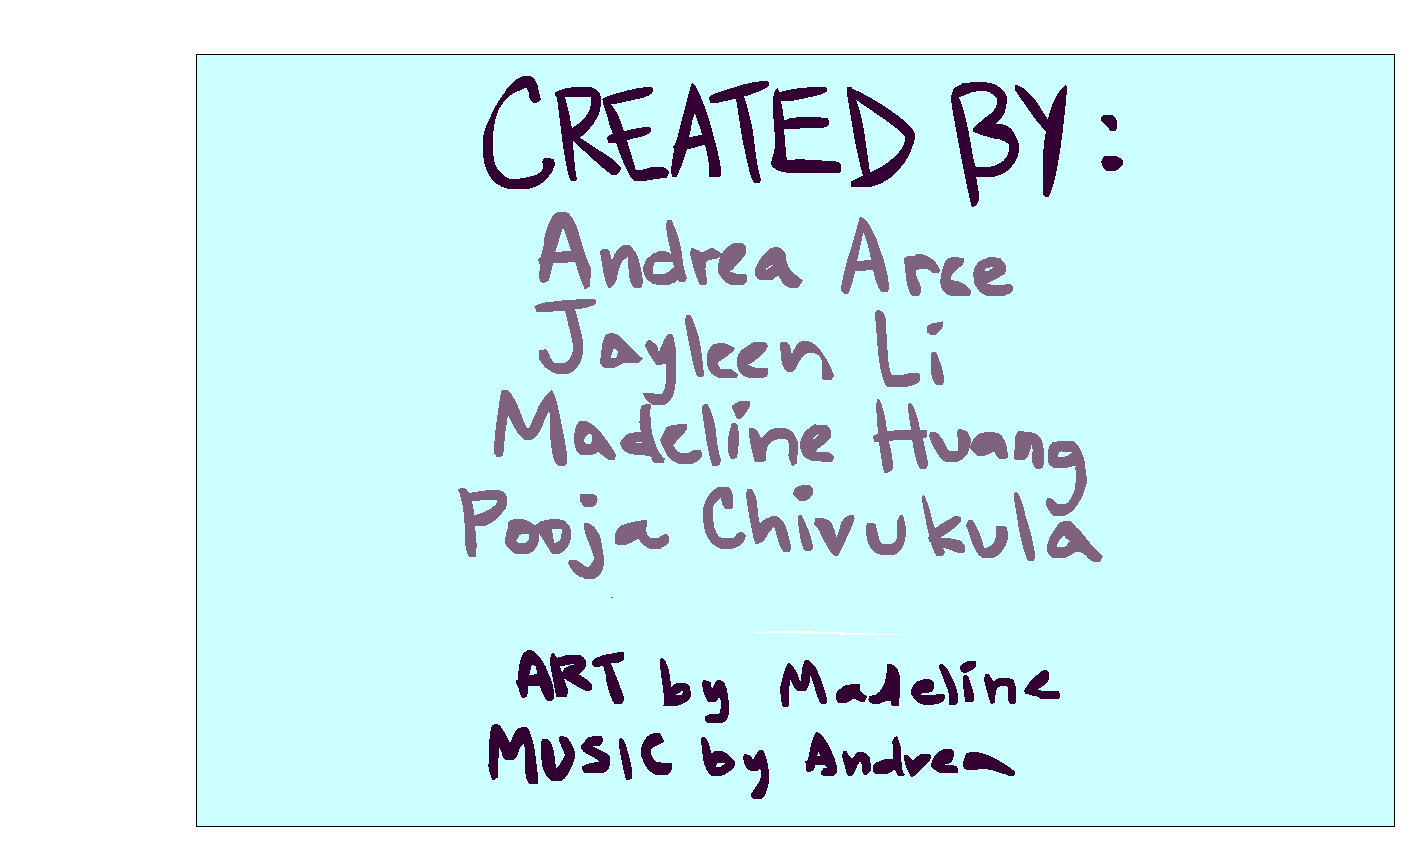 CREATED BY:
Andrea Arce
Jayleen Li
Madeline Huang
Pooja Chivukula
ART by Madeline
MUSIC by Andrea